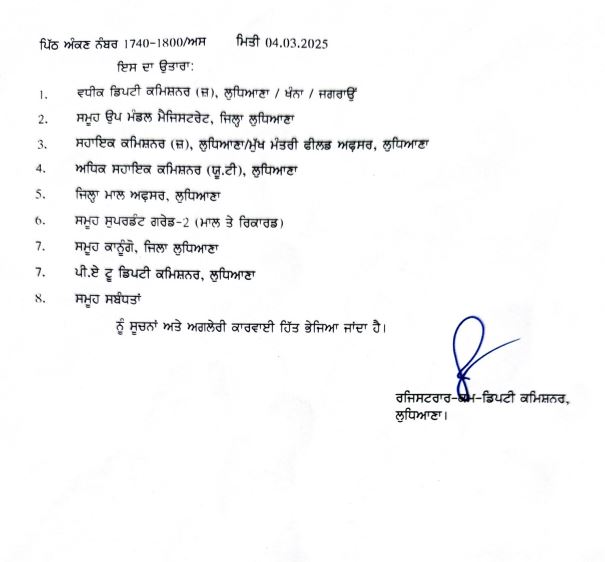 ਪਿੱਠ ਅੰਕਣ ਨੰਬਰ 1740-1800/ਅਸ ਮਿਤੀ 04.03.2025
ਇਸ ਦਾ ਉਤਾਰਾ:
1. ਵਧੀਕ ਡਿਪਟੀ ਕਮਿਸ਼ਨਰ (ਜ਼), ਲੁਧਿਆਣਾ / ਖੰਨਾ / ਜਗਰਾਉਂ
2. ਸਮੂਹ ਉਪ ਮੰਡਲ ਮੈਜਿਸਟਰੇਟ, ਜਿਲ੍ਹਾ ਲੁਧਿਆਣਾ
3. ਸਹਾਇਕ ਕਮਿਸ਼ਨਰ (ਜ਼), ਲੁਧਿਆਣਾ/ਮੁੱਖ ਮੰਤਰੀ ਫੀਲਡ ਅਫ਼ਸਰ, ਲੁਧਿਆਣਾ
4. ਅਧਿਕ ਸਹਾਇਕ ਕਮਿਸ਼ਨਰ (ਯੂ.ਟੀ), ਲੁਧਿਆਣਾ
5. ਜਿਲ੍ਹਾ ਮਾਲ ਅਫ਼ਸਰ, ਲੁਧਿਆਣਾ
6. ਸਮੂਹ ਸੁਪਰਡੰਟ ਗਰੇਡ-2 (ਮਾਲ ਤੇ ਰਿਕਾਰਡ)
7. ਸਮੂਹ ਕਾਨੂੰਗੋ, ਜਿਲਾ ਲੁਧਿਆਣਾ
7. ਪੀ.ਏ ਟੂ ਡਿਪਟੀ ਕਮਿਸ਼ਨਰ, ਲੁਧਿਆਣਾ
8. ਸਮੂਹ ਸਬੰਧਤਾਂ
ਨੂੰ ਸੂਚਨਾਂ ਅਤੇ ਅਗਲੇਰੀ ਕਾਰਵਾਈ ਹਿੱਤ ਭੇਜਿਆ ਜਾਂਦਾ ਹੈ।
ਰਜਿਸਟਰਾਰ-ਕਮ-ਡਿਪਟੀ ਕਮਿਸ਼ਨਰ,
ਲੁਧਿਆਣਾ।